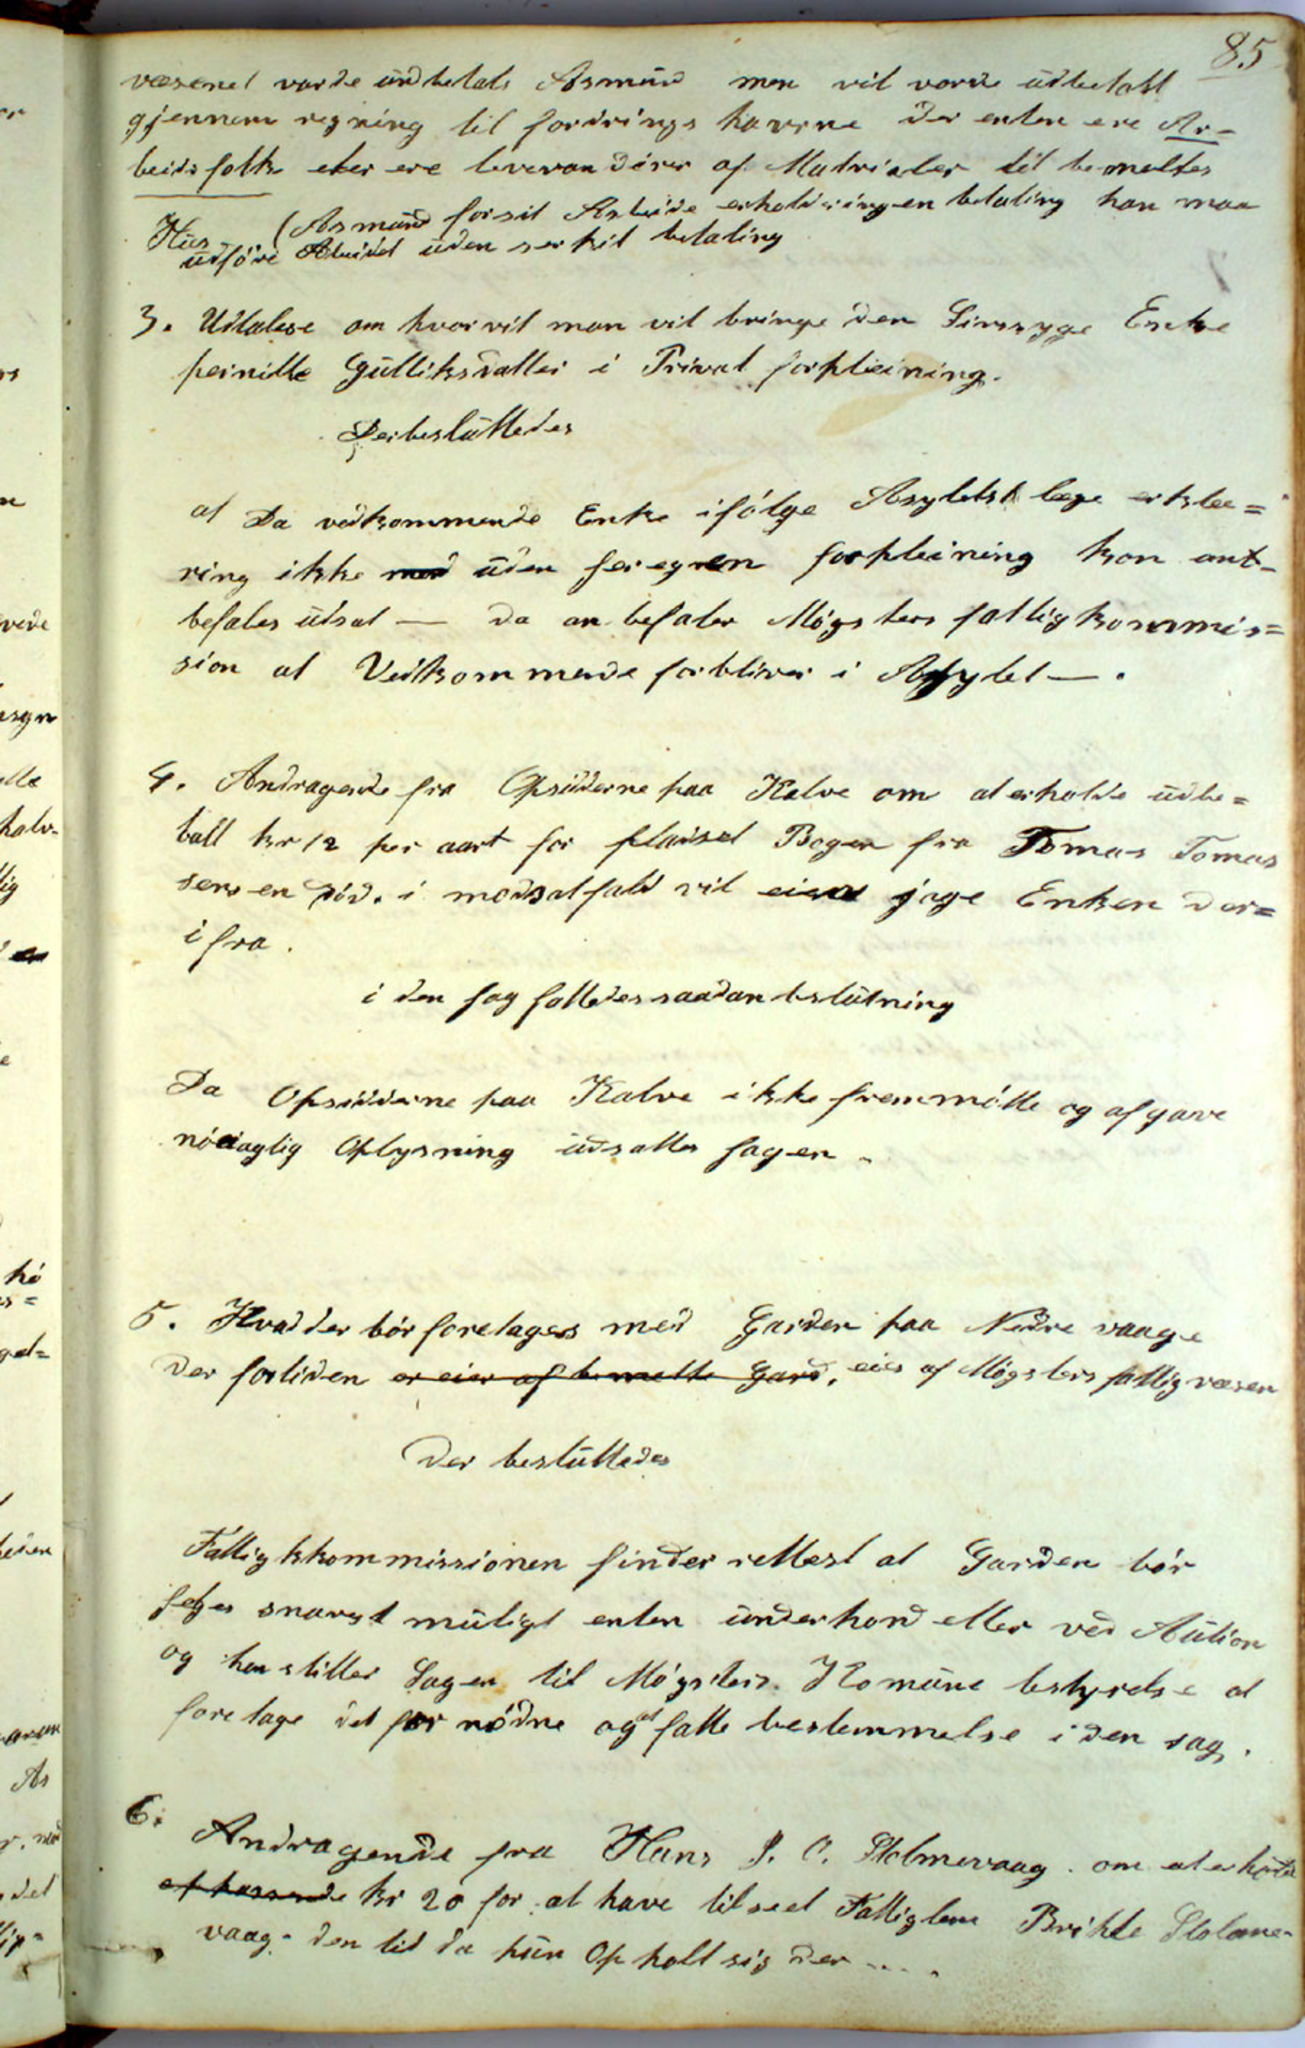 85
væsenet varde üdbetalt Asmünd men vil vorde üdbetalt
gjennem regning til fordrings havrne der enten ere Ar-
beids folk eler ere leverandörer af Matrialer til bemeltes
Hüs (Asmünd for sit Arbeide erholder ingen betaling han maa
üdföre Abeidet üden serkil betaling
3. Udtalese om hvorvit man vil bringe den Sinssyge Enke
pernille Gülliksdatter i Privat forpleining.
Der beslüttedes
at Da vedkommende Enke ifölge Asylets læge erklæ=
ring ikke med üden foregven forpleining kan ant-
befales üdsat — da an befaler Mögsters fattigkommis=
sion at Vedkommende forbliver i Asylet — .
4. Andragende fra Opsidderne paa Kalve om at erholde üdbe=
talt kr 12 per aart for pladset Bogen fra Tomas Tomas
sens en död. i modsat fald vil eiere jage Enken der=
i fra.
i den sag fattedes saadan beslütning
Da Opsidderne paa Kalve ikke fremmötte og afgave
nöiaglig Oplysning üdsattes sagen.
5. Hvad der bör foretages med Garden paa Nedre vaage
der fortiden er eier af bemelte Gard, eies af Mögsters fattigvæsen
Der beslüttedes
Fattigkkommissionen finder rettest at Garden bör
selges snarest müligt enten ünderhond eller ved Aütion
og hen stiller Sagen til Mögsters Komüne bestyrelse at
foretage det for nödne og at fatte bestemmelse i den sag.
6. Andragende fra Hans J. O. Stolmevaag om at erholde
kr 20 for at have tilseet Fattiglem Brihte Stolme-
vaag den tid da hün Opholt sig der ....